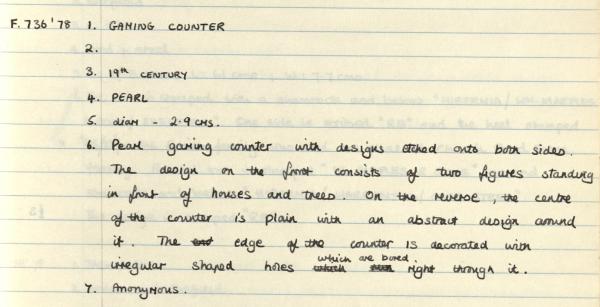 F.736'78 1. GAMING COUNTER
2.
3. 19th CENTURY
4. PEARL
5. diam - 2.9 cms.
6. Pearl gaming counter with designs etched onto both sides.
The design on the front consists of two figures standing
in front of houses and trees. On the reverse, the centre
of the counter is plain with an abstract design around
it. The edge of the counter is decorated with
irregular shaped holes which are bored right through it.
7. Anonymous.